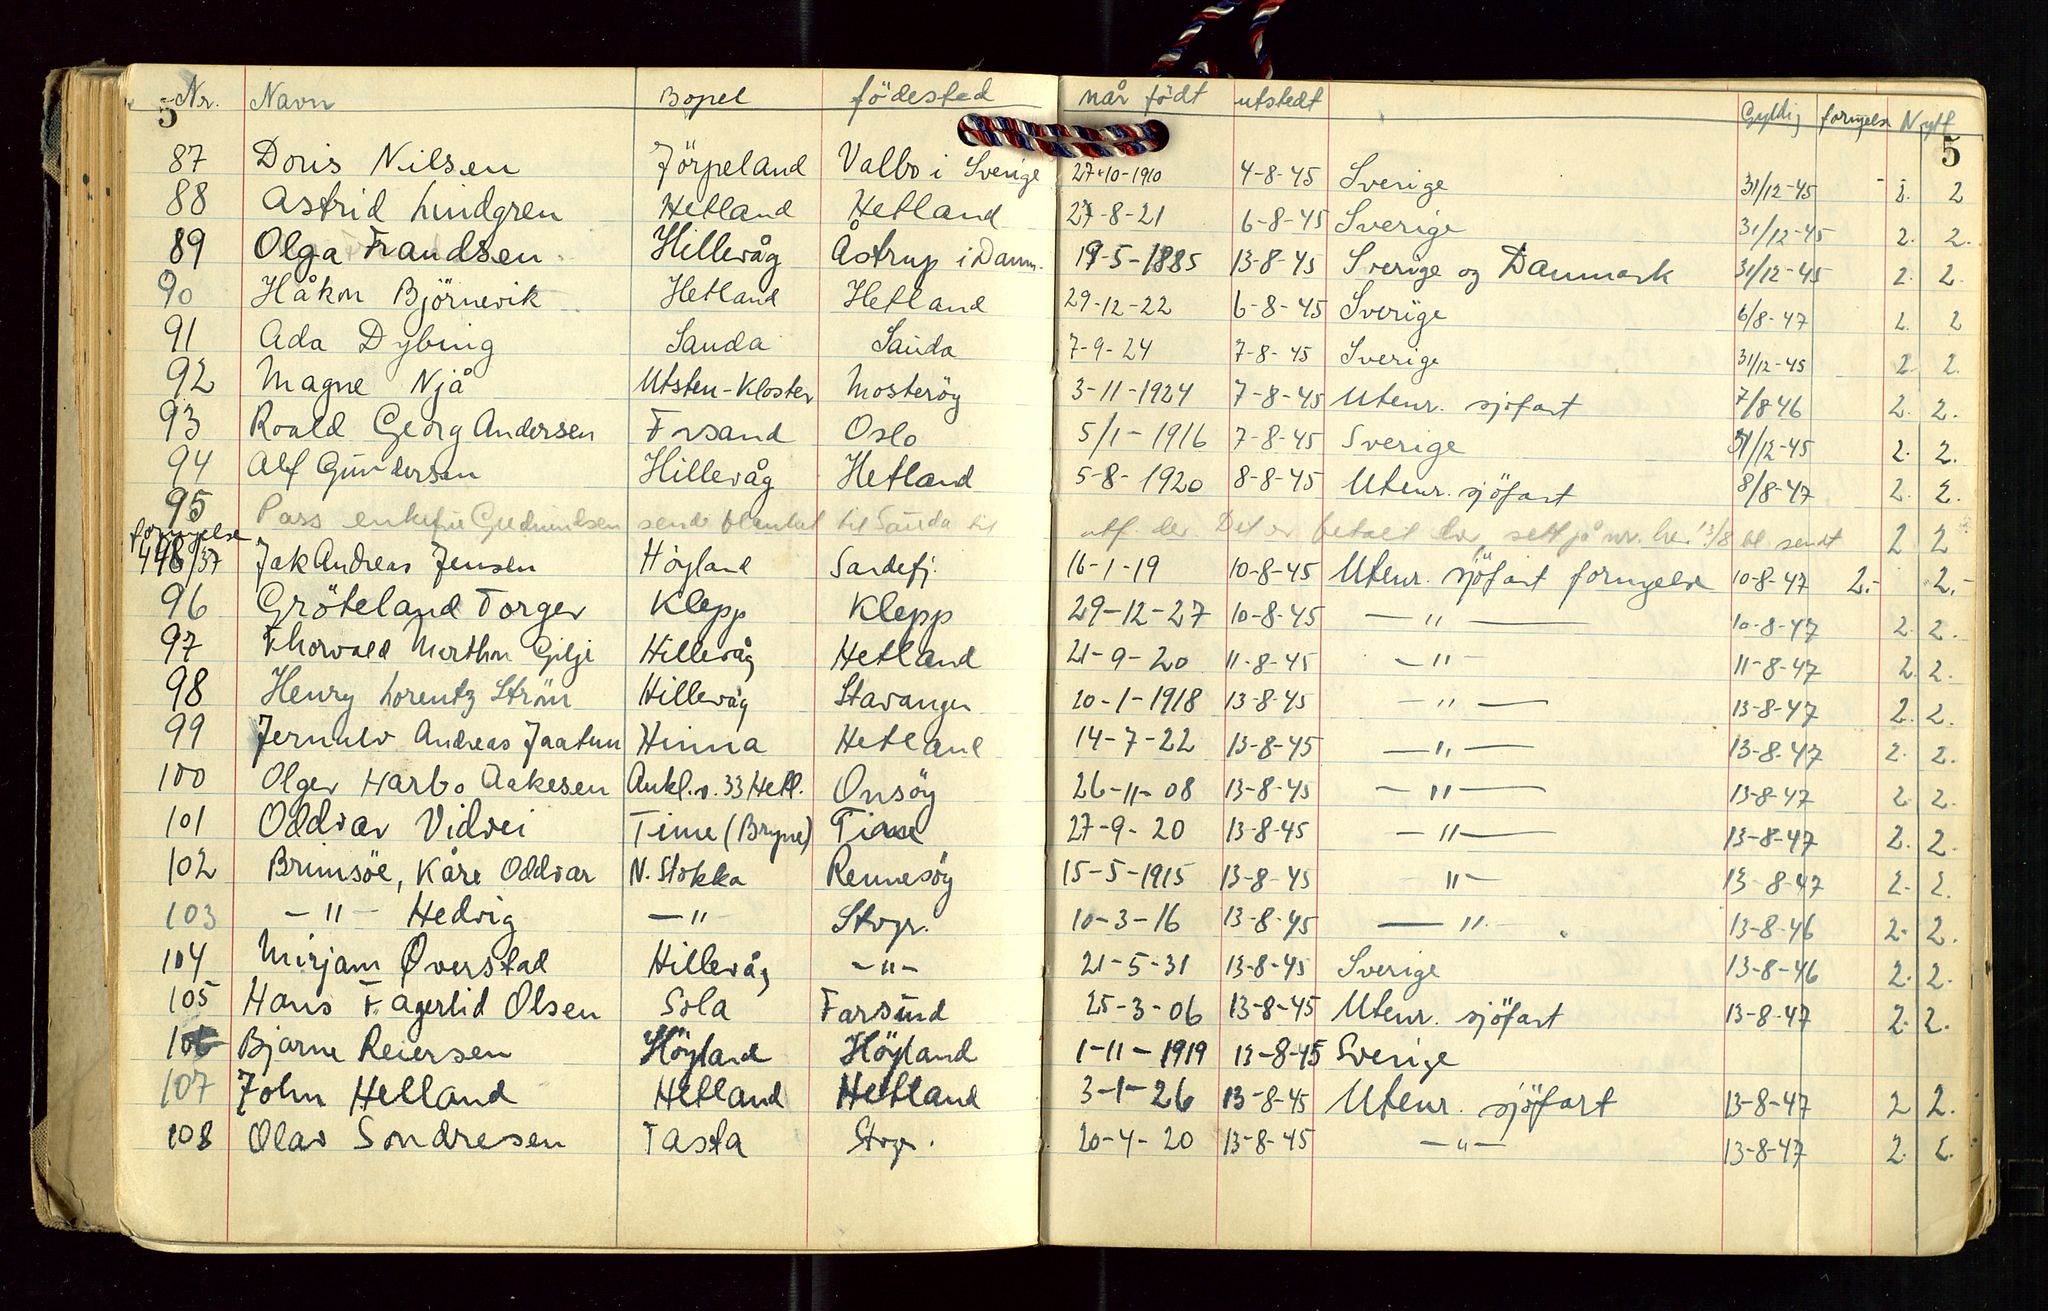 5 Nr. Navn Bopel födested når födt utstedt Gyldig fornyelse Nytt 5
87 Doris Nilsen Jörpeland Valbo i Sverige 27-10-1910 4-8-45 Sverige 31/12-45 2. 2
88 Astrid Lindgren Hetland Hetland 27-8-21 6-8-45 Sverige 31/12-45 2. 2.
89 Olga Frandsen Hillevåg Åstrup i Danm. 19-5-1885 13-8-45 Sverige og Danmark 31/12-45 2. 2.
90 Håkon Björnevik Hetland Hetland 29-12-22 6-8-45 Sverige 6/8-47 2. 2
91 Ada Dybing Sauda Sauda 7-9-24 7-8-45 Sverige 31/12-45 2. 2.
92 Magne Njå Utsten-Kloster Mosteröy 3-11-1924 7-8-45 Utenr. sjöfart 7/8 46 2. 2.
93 Roald Georg Andersen Forsand Oslo 5/1-1916 7-8-45 Sverige 31/12-45 2. 2.
94 Alf Gundersen Hillevåg Hetland 5-8-1920 8-8-45 Utenr. sjöfart 8/8-47 2. 2.
95 Pass enkefru Gudmundsen sendt blankat til Sauda til utf. der Det er betalt sett på nr. her 13/8 bl. sendt 2 2
fornyelse
448/37 Jak Andreas Jensen Höyland Sandefj 16-1-19 10-8-45 Utenr. sjöfart fornyelse 10-8-47 2.- 2.-
96 Gröteland Torger Klepp Klepp 29-12-27 10-8-45 — " — 10-8-47 2. 2.
97 Thorvald Morthon Gilje Hillevåg Hetland 21-9-20 11-8-45 — " — 11-8-47 2. 2.
98 Henry Lorentz Ström Hillevåg Stavanger 20-1-1918 13-8-45 — " — 13-8-47 2. 2.
99 Jernulv Andreas Jaatun Hinna Hetland 14-7-22 13-8-45 — " — 13-8-47 2. 2.
100 Olger Harbo Aakesen Ankl.v. 33 Hetl. Onsöy 26-11-08 13-8-45 — " — 13-8-47 2 2.
101 Oddvar Vidvei Time (Bryne) Time 27-9-20 13-8-45 — " — 13-8-47 2. 2.
102 Brimsöe, Kåre Oddvar N. Stokka Rennesöy 15-5-1915 13-8-45 " — 13-8-47 2. 2.
103 — " — Hedvig — " — Stvgr. 10-3-16 13-8-45 — " . 13-8-46 2. 2.
104 Mirjam Överstad Hillevåg — " — 21-5-31 13-8-45 Sverige 13-8-46 2. 2.
105 Hans Fagerlid Olsen Sola Farsund 25-3-06 13-8-45 Utenr. sjöfart 13-8-47 2. 2.
106 Bjarne Reiersen Höyland Höyland 1-11-1919 13-8-45 Sverige
107 John Helland Hetland Hetland 3-1-26 13-8-45 Utenr. sjöfart 13-8-47 2 2.
108 Olav Sondresen Tasta Stvgr. 20-4-20 13-8-45 — " — 13-8-47 2. 2.